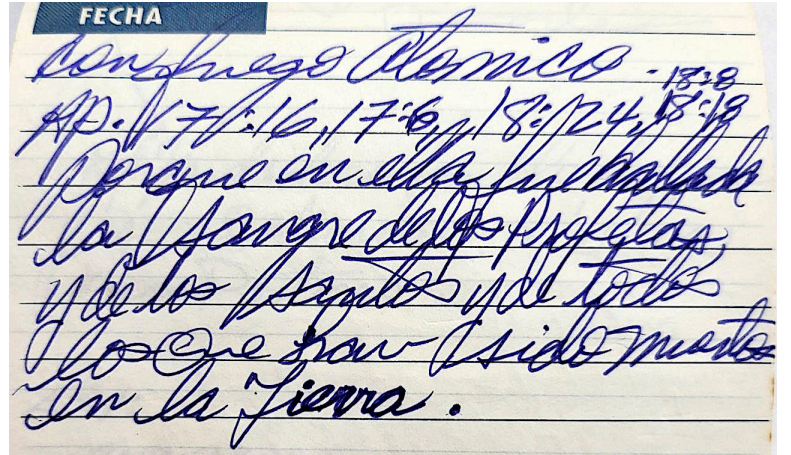 FECHA
con fuego Atomico.
-18:8
Ap. 17:16, 17:6, 18:24, 18:18
Porque en ella fue hallada
la Sangre de los Profetas,
y de los Santos y de todos
los Que han sido muertos
en la Tierra.